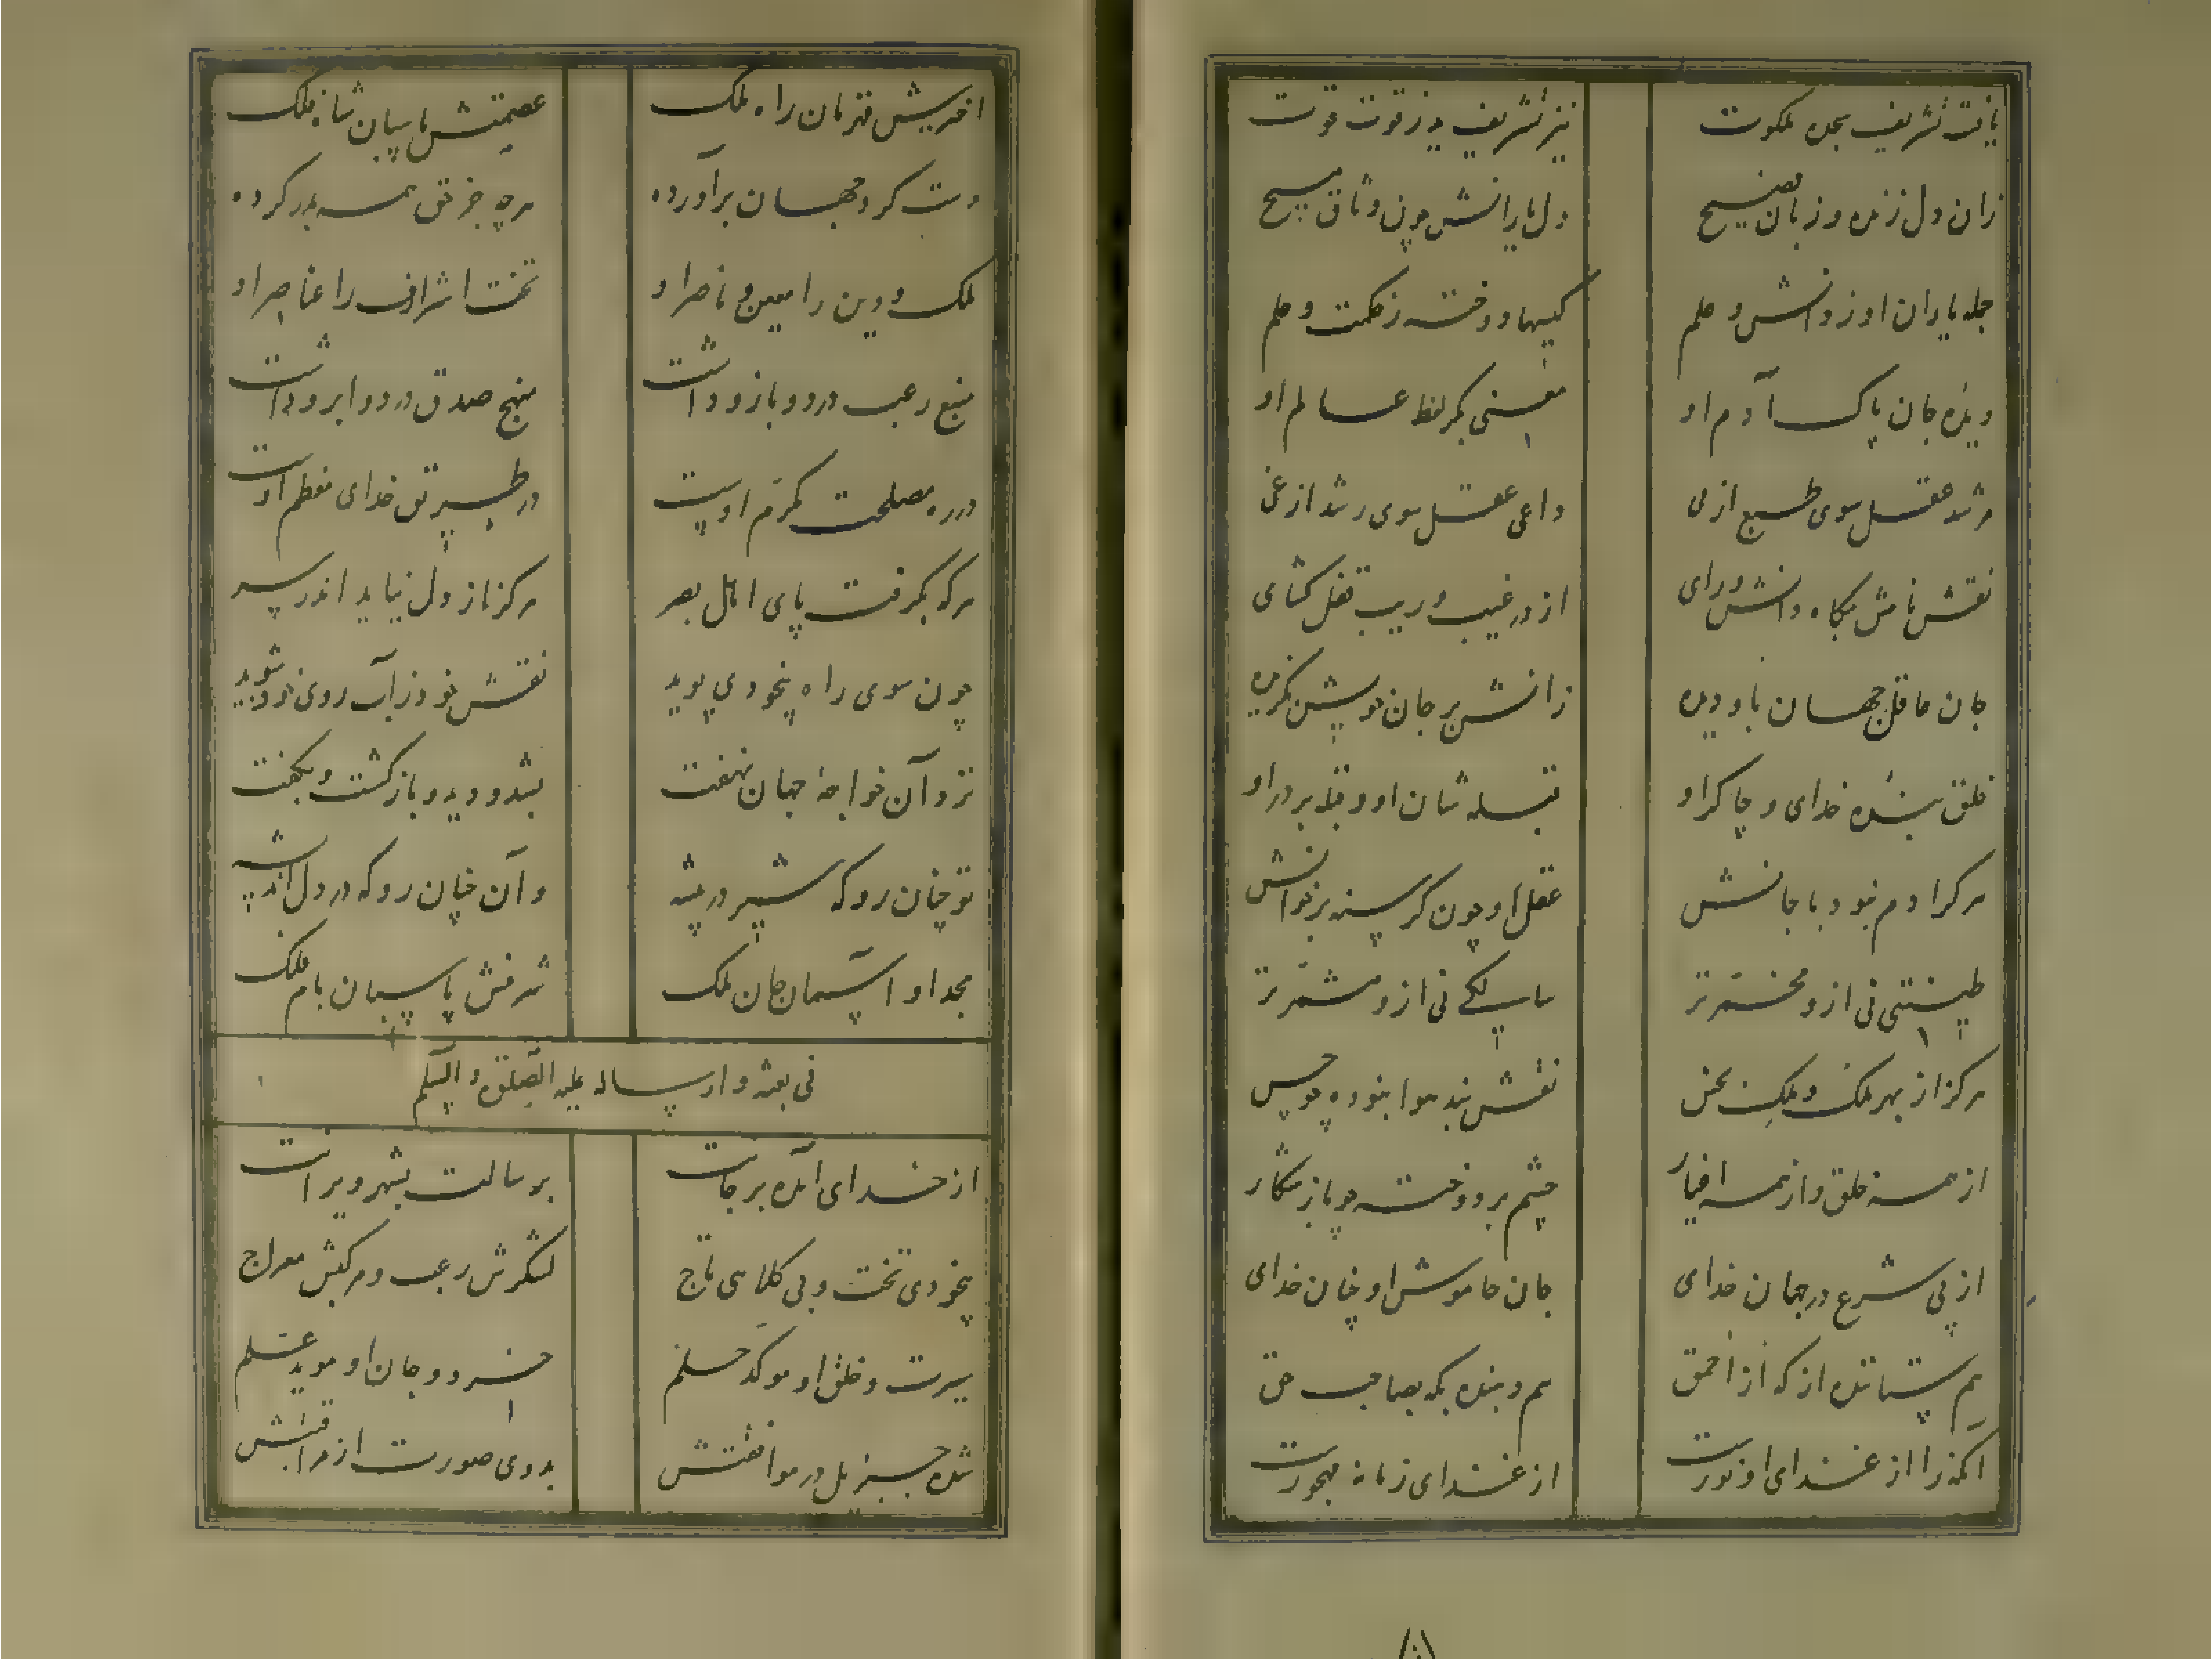 یافت تشریف سجده ملکوت
نیز تشریف پر ز قوت قوت
زان دل زنده و زبان فصیح
دل یارانش چون وثاق مسیح
جمله یاران او ز دانش و علم
کیسها دوخته ز حکمت و حلم
ویژه جان پاک آدم او
معنی بکر لفظ عالم او
مرشد عقل سوی طبع از لی
داعی عقل سوی رشد از غی
نقش نامش بگاه دانش و رای
از در غیب و ریب قفل گشای
جان عاقل جهان باو دیده
زانش بر جان خویش بگزیده
خلق بنده خدای و چاکر او
قبله شان او و قبله بر در او
هر کرا دم نبود با جانش
عقل او چون گرسنه بر خوانش
طینتی نی ازو مخمرتر
سالکی نی ازو مشمرتر
هرگز از بهر ملک و ملک نحس
نقش بند هوا نبوده چو حس
از همه خلق و از همه اخیار
چشم بر دوخته چو باز شکار
از پی شرع در جهان خدای
جان خاموش او چنان خدای
هم ستاننده از که از احمق
هم دهنده بکه بصاحب حق
آکنه را از غذای او نورست
از غذای زمانه مهجورست
آفرینش قهرمان راه ملک
عصمتش پاسبان شاه فلک
دست کرد جهان برآورده
هرچه جز حق همه بدر کرده
ملک و دین را معین و ناصر او
تخت اشراف را عناصر او
منبع رعب در دو بازو داشت
منهج صدق در دو ابرو داشت
در ره مصلحت مکرم اوست
در طریق خدای معظم اوست
هر که بگرفت پای اهل بصر
هرگز ناز دل نیاید اندر سر
چون سوی راه بیخودی پوید
نقش خود ز آب روی خود شوید
نزد آن خواجه جهان نهفت
بشد و دید و بازگشت و بگفت
تو چنان رو که شیر در بیشه
و آن چنان رو که در دل اندیشه
مجد او آسمان جان ملک
شرفش پاسبان بام فلک
فی بعثه و ارساله علیه الصلوة و السلم
از خدای آمده بر جانت
برسالت بشهر ویرانت
بیخودی تخت و بی کلاهی تاج
لشکرش رعب و مرکبش معراج
سیرت و خلق او موکد حلم
خرد و جان او موید علم
شده جبریل در موافقتش
بدوی صورت از مراقبتش